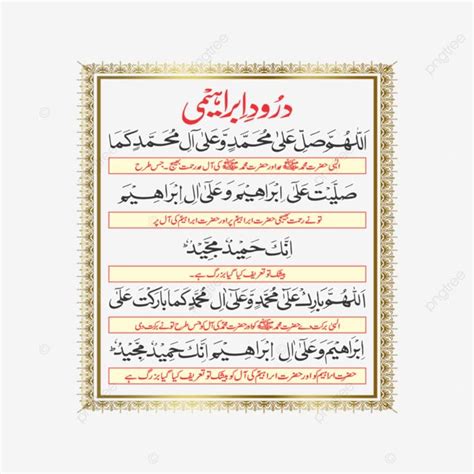 درود ابراہیمی
اَللّٰهُمَّ صَلِّ عَلٰى مُحَمَّدٍ وَّعَلٰٓى اٰلِ مُحَمَّدٍ كَمَا
الٰہی رحمت بھیج۔ جس طرح
صَلَّيْتَ عَلٰٓى اِبْرَاهِيْمَ وَ عَلٰٓى اٰلِ اِبْرَاهِيْمَ
تو نے رحمت بھیجی حضرت ابراہیمؑ پر اور حضرت ابراہیمؑ کی آل پر
اِنَّكَ حَمِيْدٌ مَّجِيْدٌ
بیشک تو تعریف کیا گیا بزرگ ہے۔
اَللّٰهُمَّ بَارِكْ عَلٰى مُحَمَّدٍ وَّعَلٰٓى اٰلِ مُحَمَّدٍ كَمَا بَارَكْتَ عَلٰٓى
الٰہی برکت دے حضرت محمد ﷺ کو اور حضرت محمدؐ کی آل کو جس طرح تو نے برکت دی
اِبْرَاهِيْمَ وَ عَلٰٓى اٰلِ اِبْرَاهِيْمَ اِنَّكَ حَمِيْدٌ مَّجِيْدٌ
حضرت ابراہیمؑ کو اور حضرت ابراہیمؑ کی آل کو بیشک تو تعریف کیا گیا بزرگ ہے
pngtree